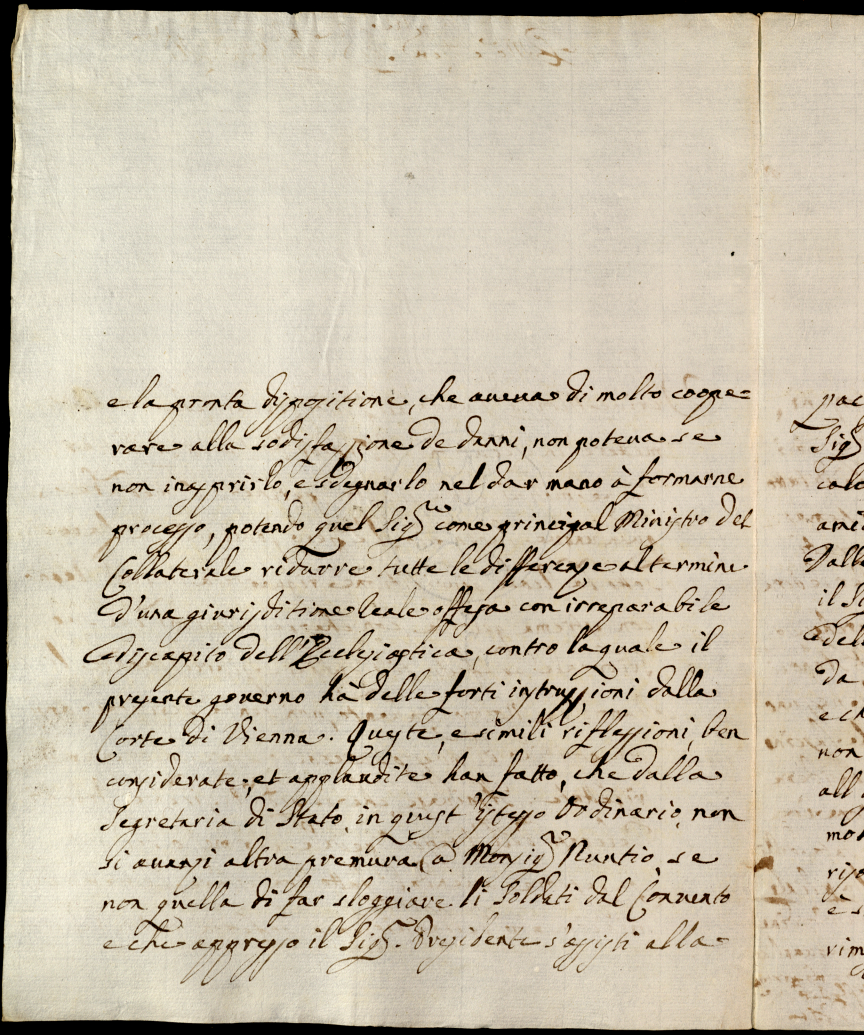 e la pronta dispositione, che aueua di molto coope=
rare alla sodisfazzione de danni, non poteua se
non inasprirlo, e sdegnarlo nel dar mano à formarne
processo, potendo quel Sig.re come principal Ministro del
Collaterale ridurre tutte le differenze al termine
d'una giurisditione leale offesa con irreparabile
discapito dell'Ecclesiastica, contro la quale il
presente gouerno hà delle forti instruzzioni dalla
Corte di Vienna. Queste, e simili riflessioni, ben
considerate, et applaudite han fatto, che dalla
Segretaria di Stato, in quest'istesso Ordinario, non
si auanzi altra premura à Monsig.r Nuntio, se
non quella di far sloggiare li Soldati dal Conuento
e che appresso il Sig.r Presidente s'assisti alla
pac
Sig.r
calo
ami
Dalla
il Si
del
da
e ch
non
all'
mo
riso
è s
rim